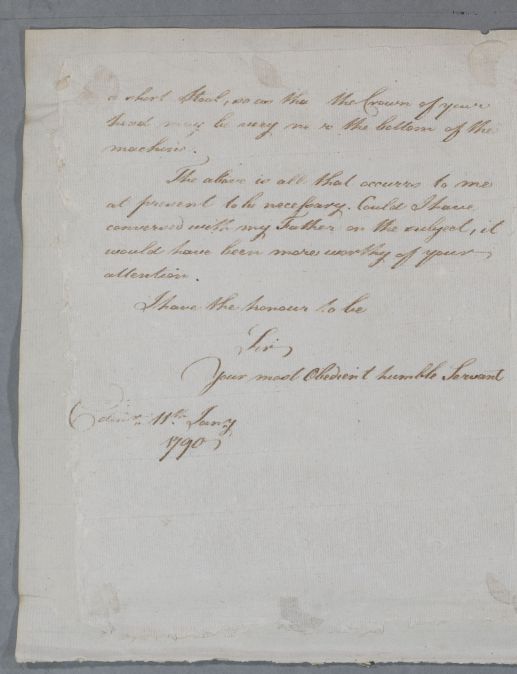 a short Stool, so as tha the Crown of your
head may be very ne r the bottom of the
machine.
The above is all that occurrs to me
at present to be necessary. Could I have
conversed with my Father on the subject, it
would have been more worthy of your
attention.
I have the honour to be
Sir
Your most Obedient humble Servant
Edinr. 11th Jany
1790